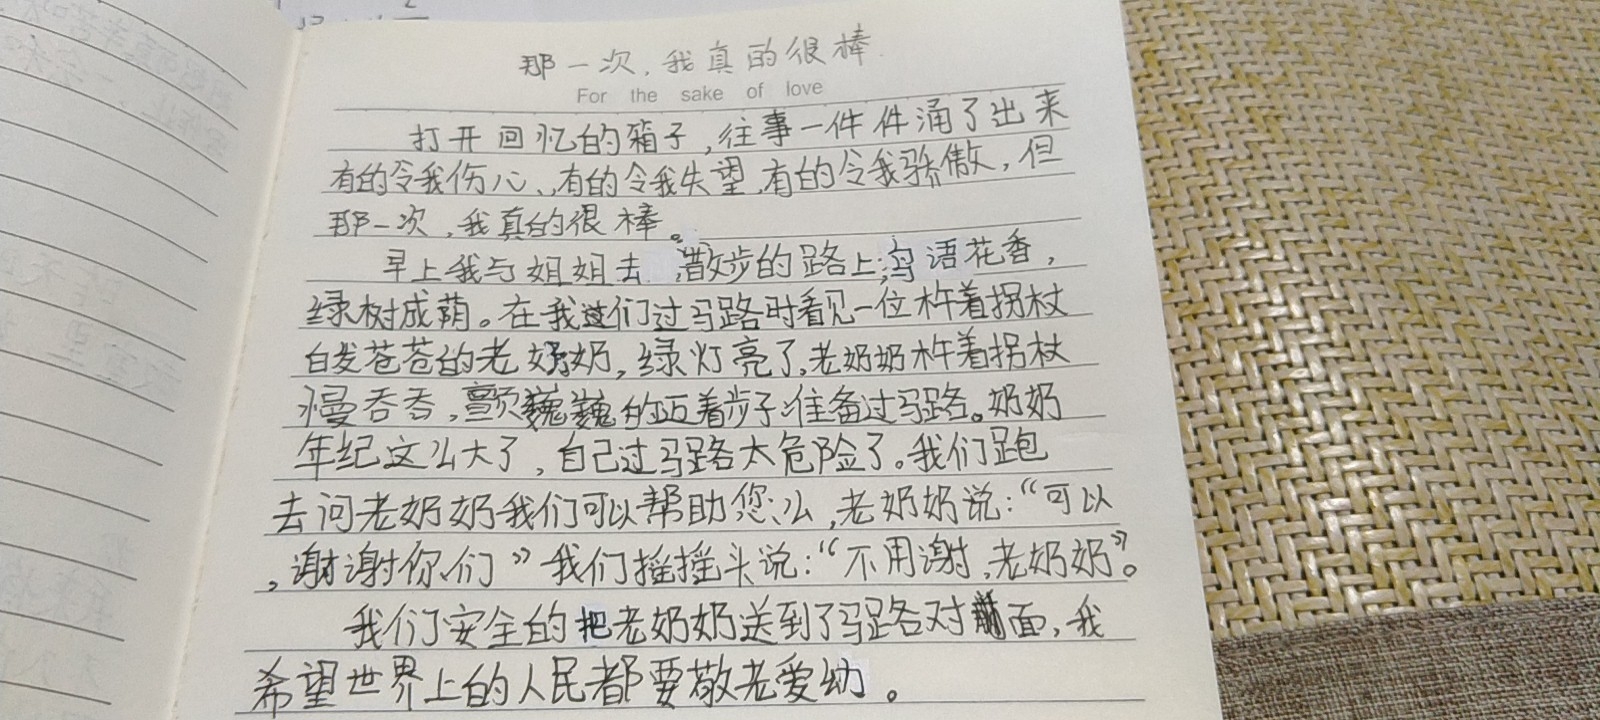 那一次,我真的很棒.
For the sake of love
打开回忆的箱子,往事一件件涌了出来
有的令我伤心、有的令我失望,有的令我骄傲,但
那一次,我真的很棒。
早上我与姐姐去散步的路上;鸟语花香,
绿树成荫。在我们过马路时看见一位杵着拐杖
白发苍苍的老奶奶,绿灯亮了,老奶奶杵着拐杖
慢吞吞,颤巍巍的迈着步子准备过马路。奶奶
年纪这么大了,自己过马路太危险了。我们跑
去问老奶奶我们可以帮助您么,老奶奶说:“可以
,谢谢你们”我们摇摇头说:“不用谢,老奶奶”。
我们安全的把老奶奶送到了马路对面,我
希望世界上的人民都要敬老爱幼。